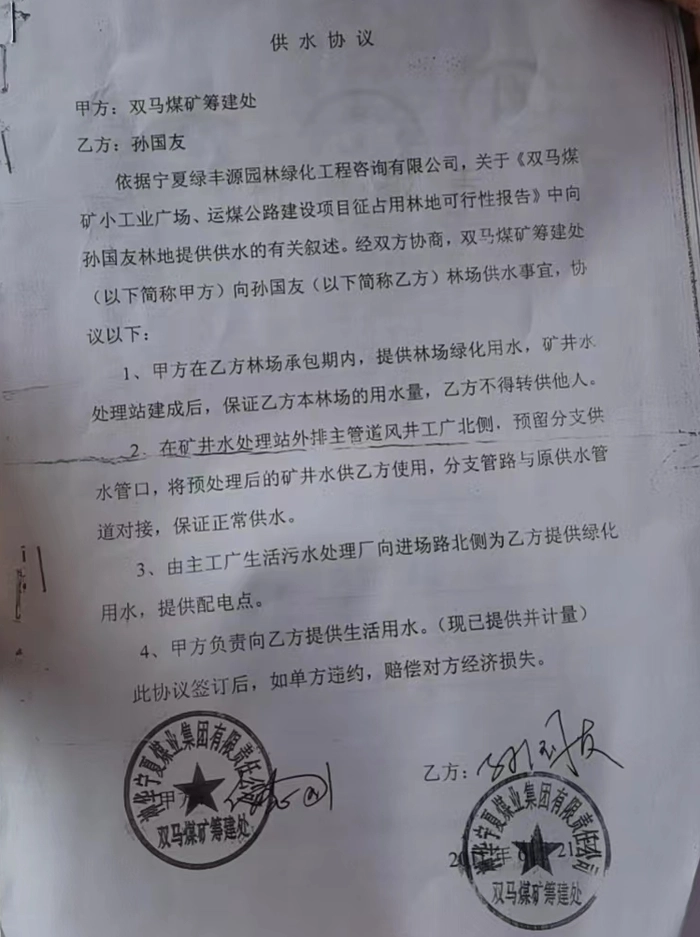 供水协议
甲方：双马煤矿筹建处
乙方：孙国友
依据宁夏绿丰源园林绿化工程咨询有限公司，关于《双马煤
矿小工业广场、运煤公路建设项目征占用林地可行性报告》中向
孙国友林地提供供水的有关叙述。经双方协商，双马煤矿筹建处
（以下简称甲方）向孙国友（以下简称乙方）林场供水事宜，协
议以下：
1、甲方在乙方林场承包期内，提供林场绿化用水，矿井水
处理站建成后，保证乙方本林场的用水量，乙方不得转供他人。
2、在矿井水处理站外排主管道风井工广北侧，预留分支供
水管口，将预处理后的矿井水供乙方使用，分支管路与原供水管
道对接，保证正常供水。
3、由主工广生活污水处理厂向进场路北侧为乙方提供绿化
用水，提供配电点。
4、甲方负责向乙方提供生活用水。（现已提供并计量）
此协议签订后，如单方违约，赔偿对方经济损失。
神华宁夏煤业集团有限责任公司
甲方
双马煤矿筹建处
乙方：孙国友
神华宁夏煤业集团有限责任公司
年 21
双马煤矿筹建处